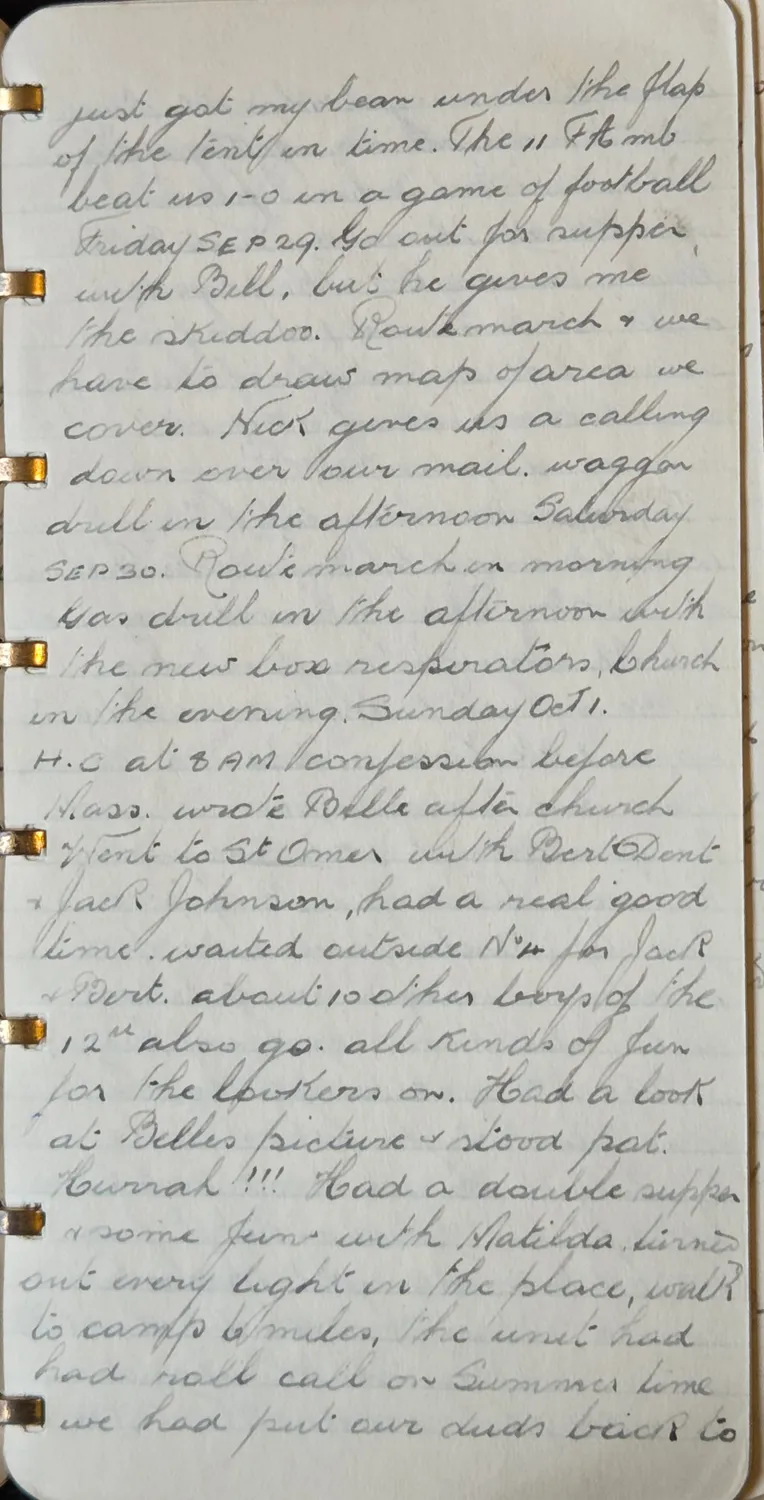 just got my bean under the flap
of the tent in time. The 11 FAmb
beat us 1-0 in a game of football
Friday SEP 29. Go out for supper
with Bell, but he gives me
the skiddoo. Route march & we
have to draw map of area we
cover. Nick gives us a calling
down over our mail. waggon
drill in the afternoon Saturday
SEP 30. Route march in morning
Gas drill in the afternoon with
the new box respirators, Church
in the evening. Sunday Oct 1.
H.C at 8 AM confession before
Mass. wrote Belle after church
Went to St Omer with Bert Dent
& Jack Johnson, had a real good
time. waited outside No 4 for Jack
& Bert. about 10 other boys of the
12th also go. all kinds of fun
for the lookers on. Had a look
at Belles picture & stood pat.
Hurrah !!! Had a double supper
& some fun with Matilda. turned
out every light in the place, walk
to camp 6 miles, the unit had
had roll call on Summer time
we had put our duds back to